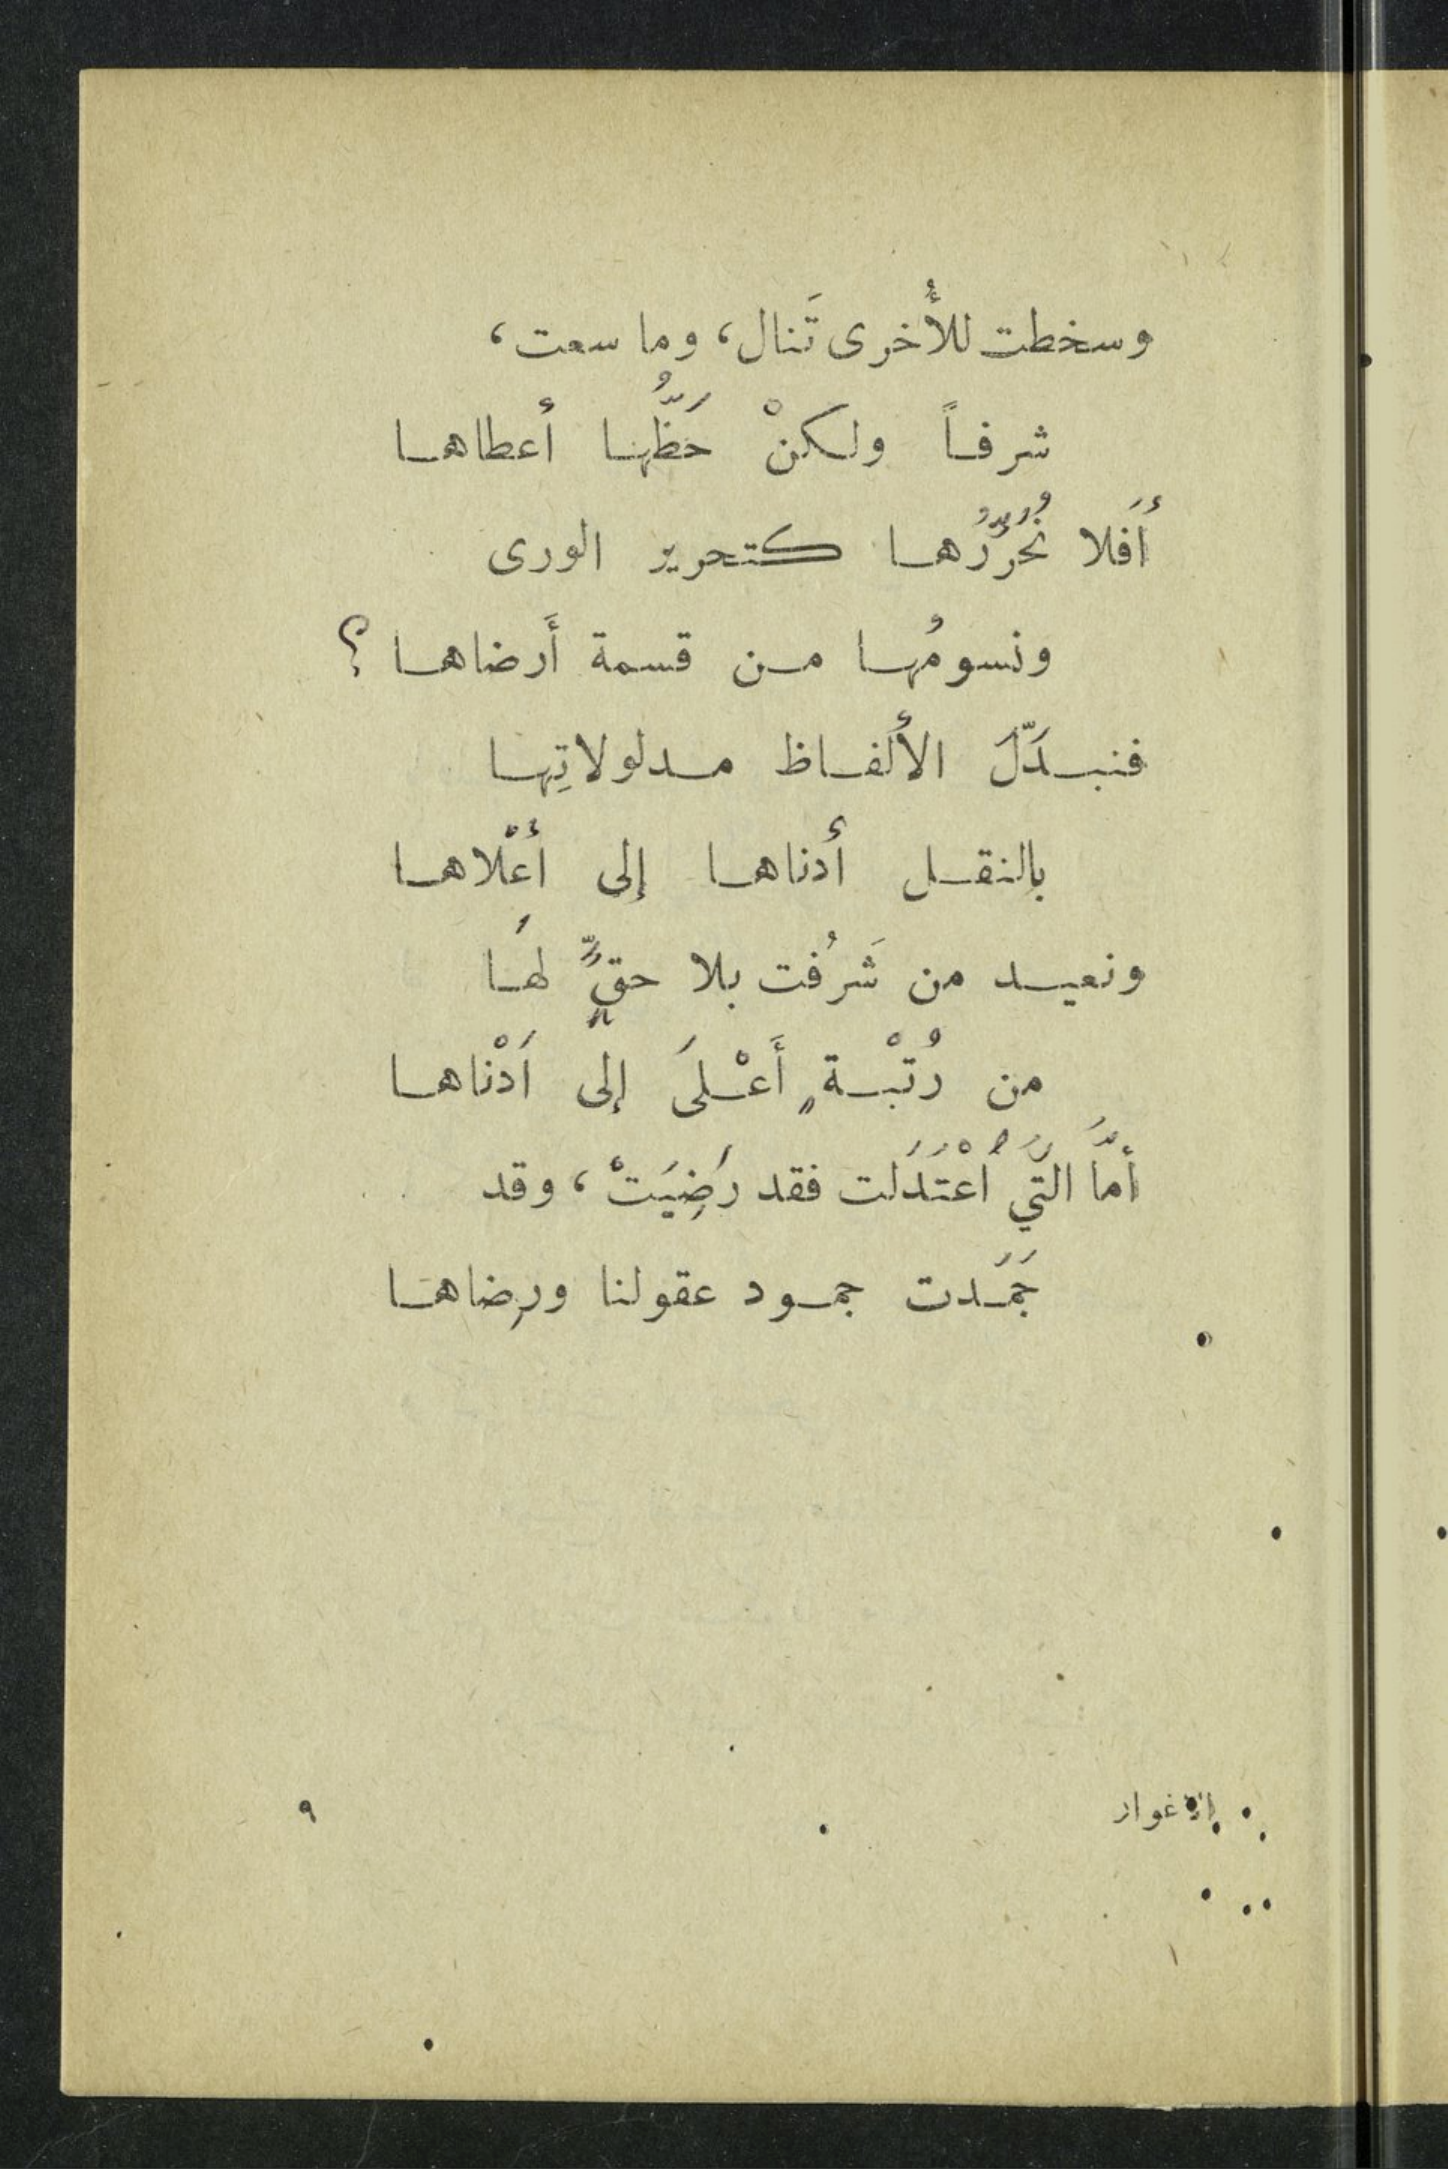 وسخطت للأُخرى تَنال، وما سعت،
شرفاً ولكنْ حَظُّها أعطاها
أَفلا نُحُرِّرُها كتحرير الورى
ونسومُها من قسمة أَرضاها ؟
فنبدَّلَ الألفاظ مدلولاتِها
بالنقل أدناها إلى أعْلاها
ونعيد من شَرُفت بلا حقٍّ لهَا
من رُتْبةٍ أَعْلىَ إلى اَدْناها
أمَّا التَّي اُعْتَدَلت فقد رَضِيَتْ، وقد
جَمَدت جمود عقولنا ورِضاهَا
الاغوار
٩